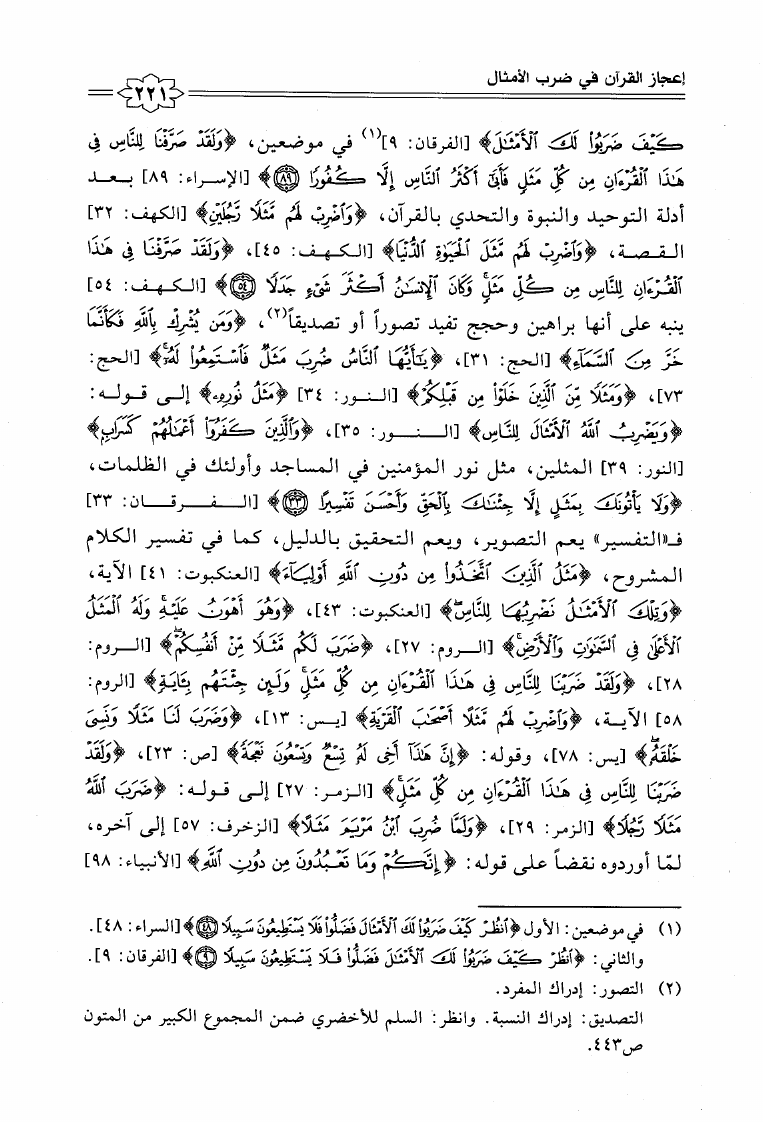 إعجاز القرآن في ضرب الأمثال
٢٢١
كَيْفَ ضَرَبُوا۟ لَكَ ٱلْأَمْثَـٰلَ﴾ [الفرقان: ٩](١) في موضعين، ﴿وَلَقَدْ صَرَّفْنَا لِلنَّاسِ فِى
هَـٰذَا ٱلْقُرْءَانِ مِن كُلِّ مَثَلٍ فَأَبَىٰٓ أَكْثَرُ ٱلنَّاسِ إِلَّا كُفُورًا ۝٨٩﴾ [الإسراء: ٨٩] بعد
أدلة التوحيد والنبوة والتحدي بالقرآن، ﴿وَٱضْرِبْ لَهُم مَّثَلًا رَّجُلَيْنِ﴾ [الكهف: ٣٢]
القصة، ﴿وَٱضْرِبْ لَهُم مَّثَلَ ٱلْحَيَوٰةِ ٱلدُّنْيَا﴾ [الكهف: ٤٥]، ﴿وَلَقَدْ صَرَّفْنَا فِى هَـٰذَا
ٱلْقُرْءَانِ لِلنَّاسِ مِن كُلِّ مَثَلٍۢ ۚ وَكَانَ ٱلْإِنسَـٰنُ أَكْثَرَ شَىْءٍ جَدَلًا ۝٥٤﴾ [الكهف: ٥٤]
ينبه على أنها براهين وحجج تفيد تصوراً أو تصديقاً(٢)، ﴿وَمَن يُشْرِكْ بِٱللَّهِ فَكَأَنَّمَا
خَرَّ مِنَ ٱلسَّمَآءِ﴾ [الحج: ٣١]، ﴿يَـٰٓأَيُّهَا ٱلنَّاسُ ضُرِبَ مَثَلٌ فَٱسْتَمِعُوا۟ لَهُۥٓ ۚ﴾ [الحج:
٧٣]، ﴿وَمَثَلًا مِّنَ ٱلَّذِينَ خَلَوْا۟ مِن قَبْلِكُمْ﴾ [النور: ٣٤] ﴿مَثَلُ نُورِهِۦ﴾ إلى قوله:
﴿وَيَضْرِبُ ٱللَّهُ ٱلْأَمْثَـٰلَ لِلنَّاسِ﴾ [النور: ٣٥]، ﴿وَٱلَّذِينَ كَفَرُوٓا۟ أَعْمَـٰلُهُمْ كَسَرَابٍۭ﴾
[النور: ٣٩] المثلين، مثل نور المؤمنين في المساجد وأولئك في الظلمات،
﴿وَلَا يَأْتُونَكَ بِمَثَلٍ إِلَّا جِئْنَـٰكَ بِٱلْحَقِّ وَأَحْسَنَ تَفْسِيرًا ۝٣٣﴾ [الفرقان: ٣٣]
فـ«التفسير» يعم التصوير، ويعم التحقيق بالدليل، كما في تفسير الكلام
المشروح، ﴿مَثَلُ ٱلَّذِينَ ٱتَّخَذُوا۟ مِن دُونِ ٱللَّهِ أَوْلِيَآءَ﴾ [العنكبوت: ٤١] الآية،
﴿وَتِلْكَ ٱلْأَمْثَـٰلُ نَضْرِبُهَا لِلنَّاسِ ۖ﴾ [العنكبوت: ٤٣]، ﴿وَهُوَ أَهْوَنُ عَلَيْهِ ۚ وَلَهُ ٱلْمَثَلُ
ٱلْأَعْلَىٰ فِى ٱلسَّمَـٰوَٰتِ وَٱلْأَرْضِ ۚ﴾ [الروم: ٢٧]، ﴿ضَرَبَ لَكُم مَّثَلًا مِّنْ أَنفُسِكُمْ ۖ﴾ [الروم:
٢٨]، ﴿وَلَقَدْ ضَرَبْنَا لِلنَّاسِ فِى هَـٰذَا ٱلْقُرْءَانِ مِن كُلِّ مَثَلٍ ۚ وَلَئِن جِئْتَهُم بِـَٔايَةٍ﴾ [الروم:
٥٨] الآية، ﴿وَٱضْرِبْ لَهُم مَّثَلًا أَصْحَـٰبَ ٱلْقَرْيَةِ﴾ [يس: ١٣]، ﴿وَضَرَبَ لَنَا مَثَلًا وَنَسِىَ
خَلْقَهُۥ ۖ﴾ [يس: ٧٨]، وقوله: ﴿إِنَّ هَـٰذَآ أَخِى لَهُۥ تِسْعٌ وَتِسْعُونَ نَعْجَةً﴾ [ص: ٢٣]، ﴿وَلَقَدْ
ضَرَبْنَا لِلنَّاسِ فِى هَـٰذَا ٱلْقُرْءَانِ مِن كُلِّ مَثَلٍ ۚ﴾ [الزمر: ٢٧] إلى قوله: ﴿ضَرَبَ ٱللَّهُ
مَثَلًا رَّجُلًا﴾ [الزمر: ٢٩]، ﴿وَلَمَّا ضُرِبَ ٱبْنُ مَرْيَمَ مَثَلًا﴾ [الزخرف: ٥٧] إلى آخره،
لمّا أوردوه نقضاً على قوله: ﴿إِنَّكُمْ وَمَا تَعْبُدُونَ مِن دُونِ ٱللَّهِ﴾ [الأنبياء: ٩٨]
(١) في موضعين: الأول ﴿ٱنظُرْ كَيْفَ ضَرَبُوا۟ لَكَ ٱلْأَمْثَالَ فَضَلُّوا۟ فَلَا يَسْتَطِيعُونَ سَبِيلًا ۝٤٨﴾ [السراء: ٤٨].
والثاني: ﴿ٱنظُرْ كَيْفَ ضَرَبُوا۟ لَكَ ٱلْأَمْثَـٰلَ فَضَلُّوا۟ فَلَا يَسْتَطِيعُونَ سَبِيلًا ۝٩﴾ [الفرقان: ٩].
(٢) التصور: إدراك المفرد.
التصديق: إدراك النسبة. وانظر: السلم للأخضري ضمن المجموع الكبير من المتون
ص٤٤٣.